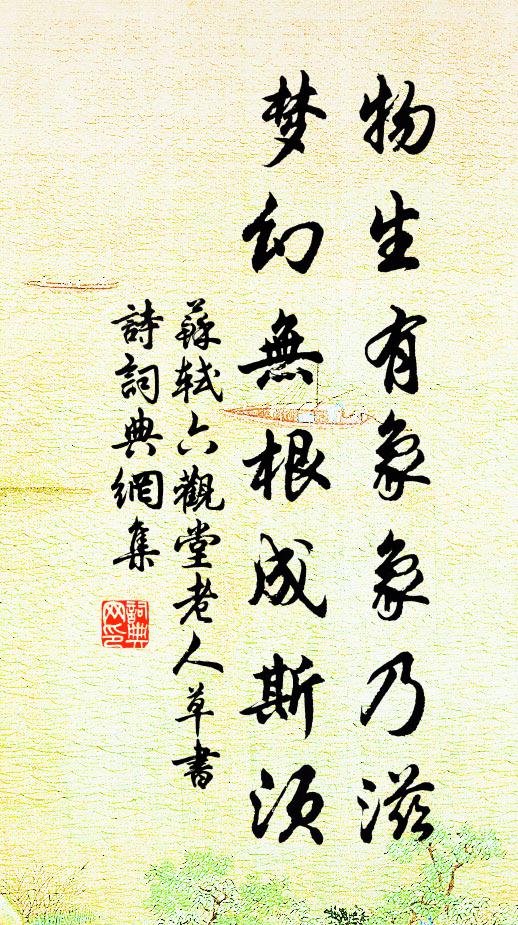 物生有象象乃滋
梦幻無根成斯须
蘇軾六觀堂老人草書
詩詞典網集
詞典
网印